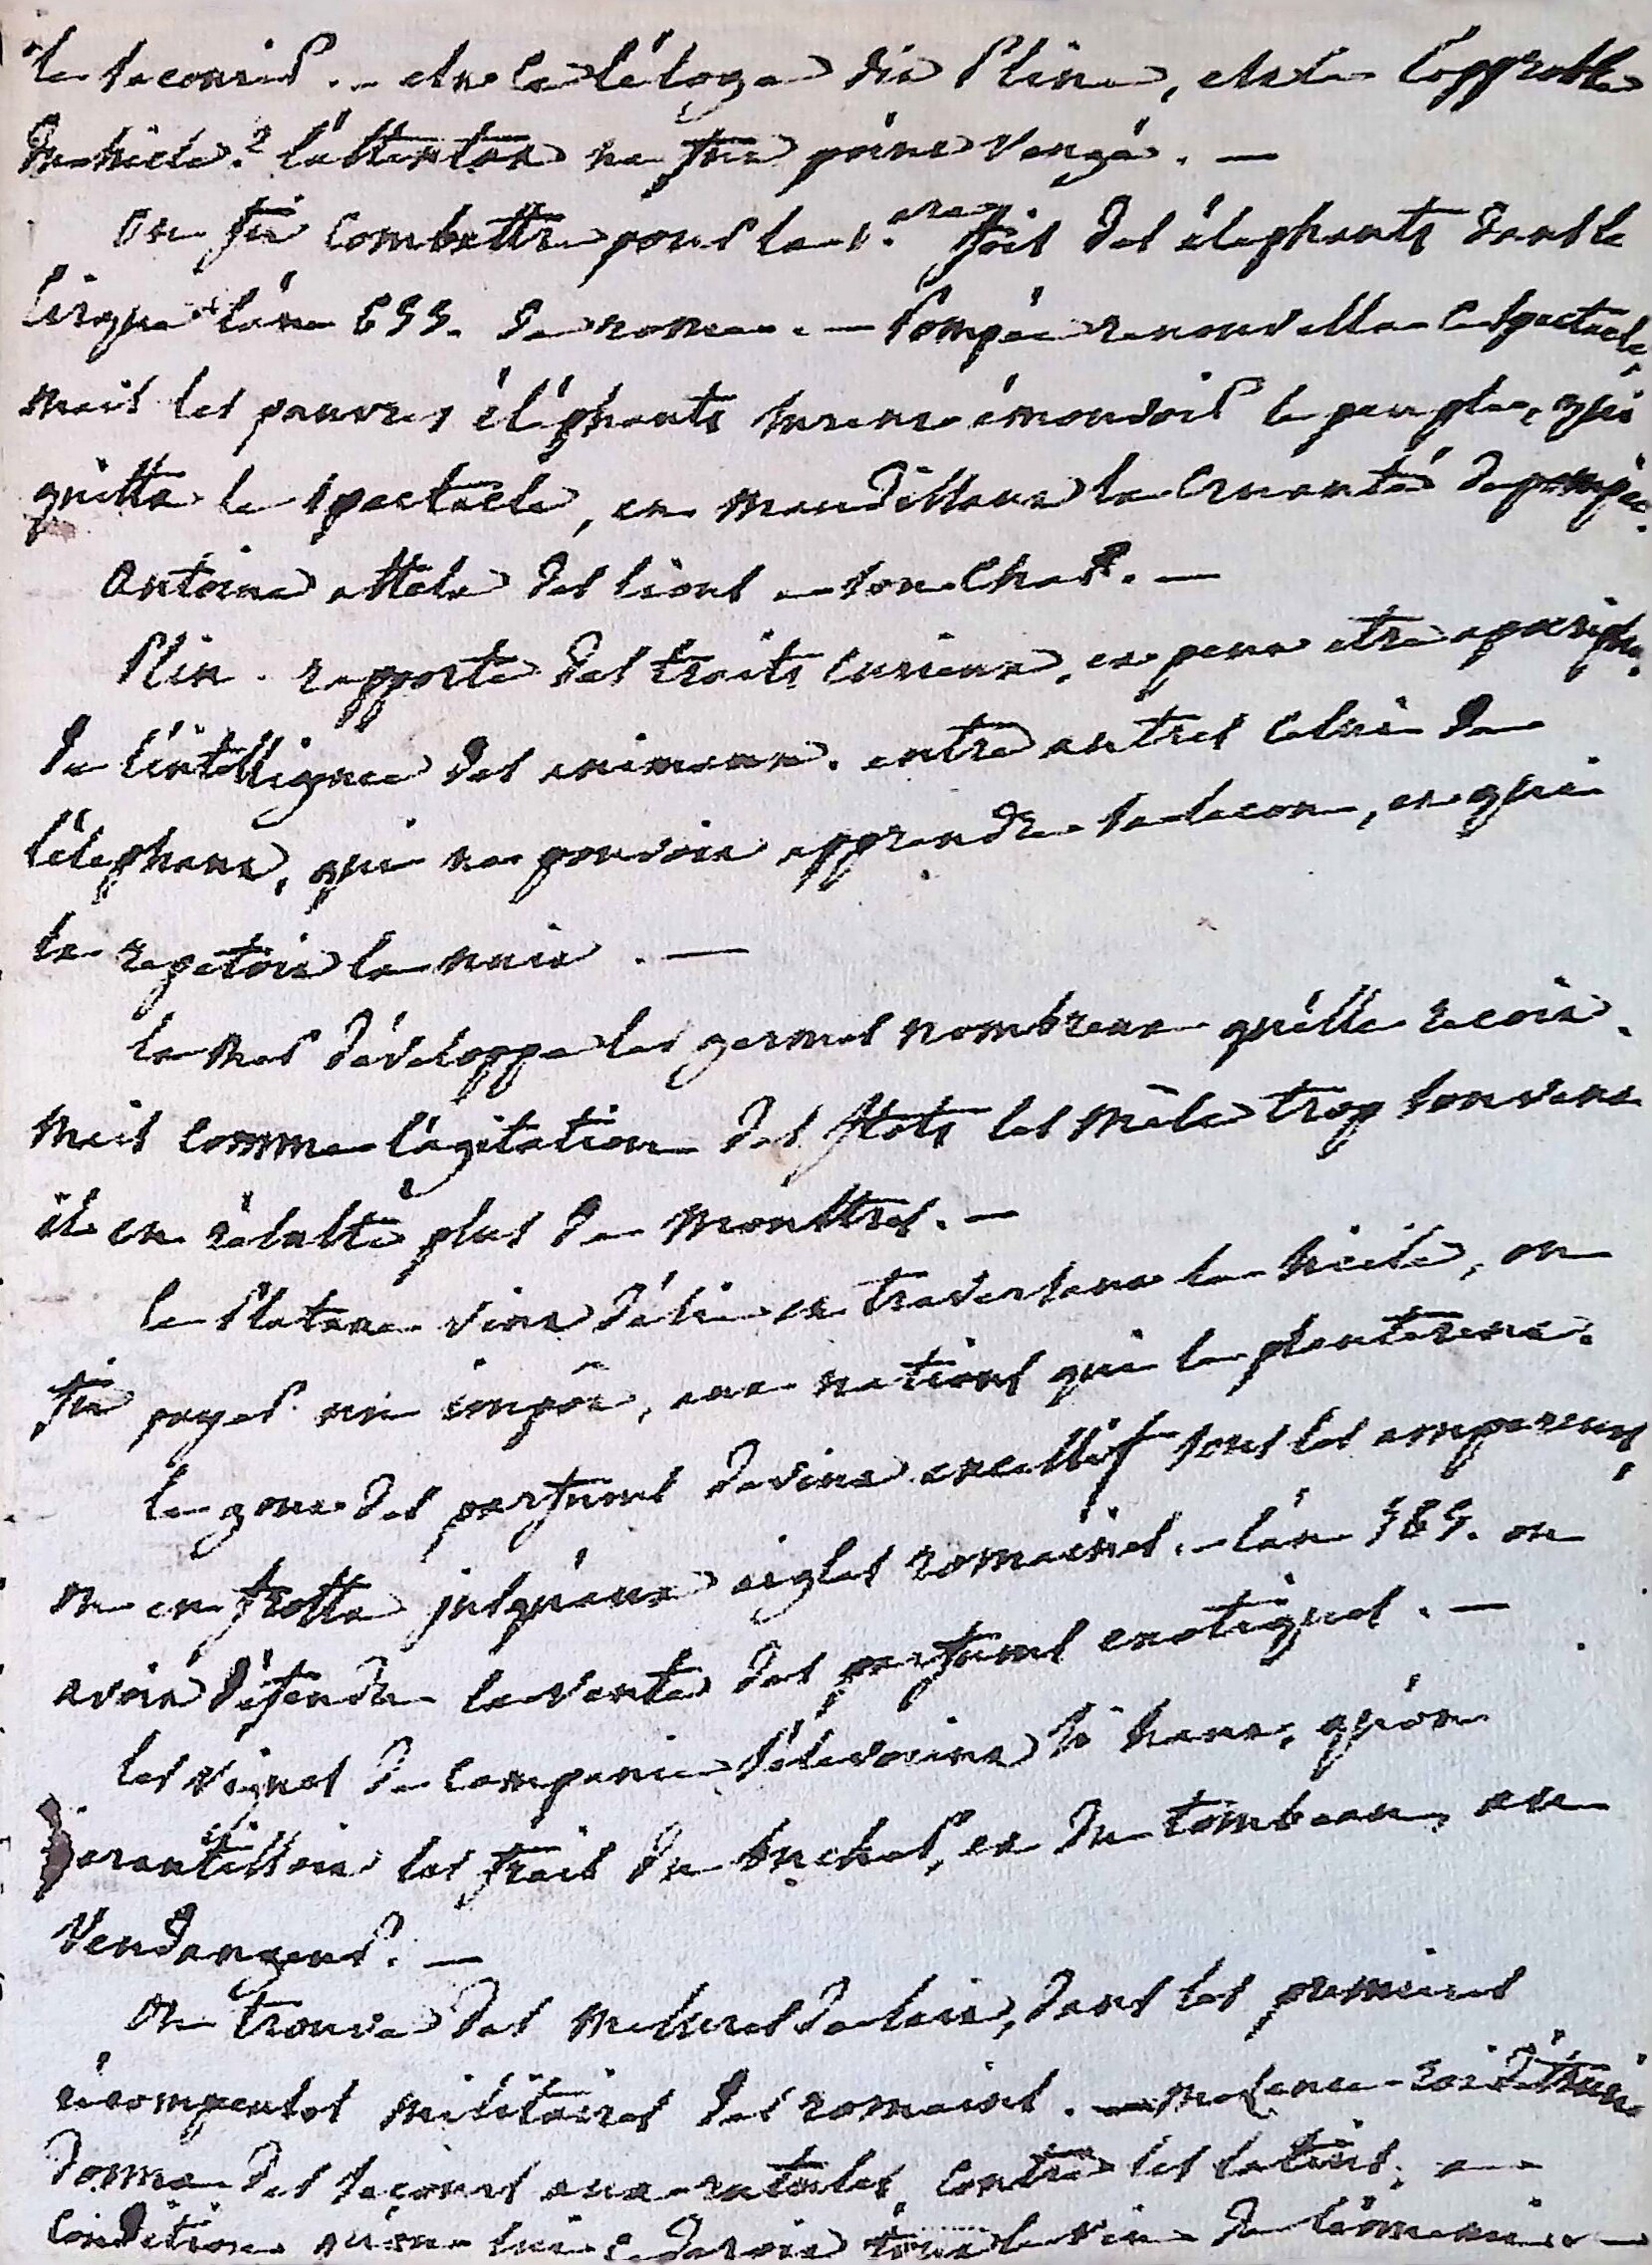 le secourir. — et ce la l'eloge dit Pline, et la l'opprobre
du siècle? l'attentat ne fut point vengé. —
on fit combattre pour la 1.ere fois des éléphants dans le
cirque l'an 655. de rome. — Pompée renouvella ce spectacle,
mais les pauvres éléphants surent émouvoir le peuple, qui
quitta le spectacle, en maudissant la cruauté de pompée.
antoine attela des lions a son char. —
Plin. rapporte des traits curieux, et peut etre apocriphes,
de l'intelligence des animaux. entre autres celui de
l'éléphant, qui ne pouvoit apprendre sa lecon, et qui
la repetoit la nuit. —
la mer développe les germes nombreux qu'elle recoit.
mais comme l'agitation des flots les mêle trop souvent
il en résulte plus de monstres. —
le Platane vint d'asie en traversant la sicile, on
fit payer un impôt, aux nations qui le planterent.
le gout des parfums devint excessif sous les empereurs,
on en frotta jusqu'aux aigles romaines. — l'an 565. on
avoit défendu la vente des parfums exotiques. —
les vignes de campanie s'élevoient si haut, qu'on
garantissoit les frais du bucher, et du tombeau, au
vendangeur. —
on trouve des mesures de lait, dans les premieres
récompenses militaires des romains. — mezence roi d'étrurie
donna des secours aux rutules, contre les latins, a
condition qu'on lui cederoit tout le vin de l'ennemi —